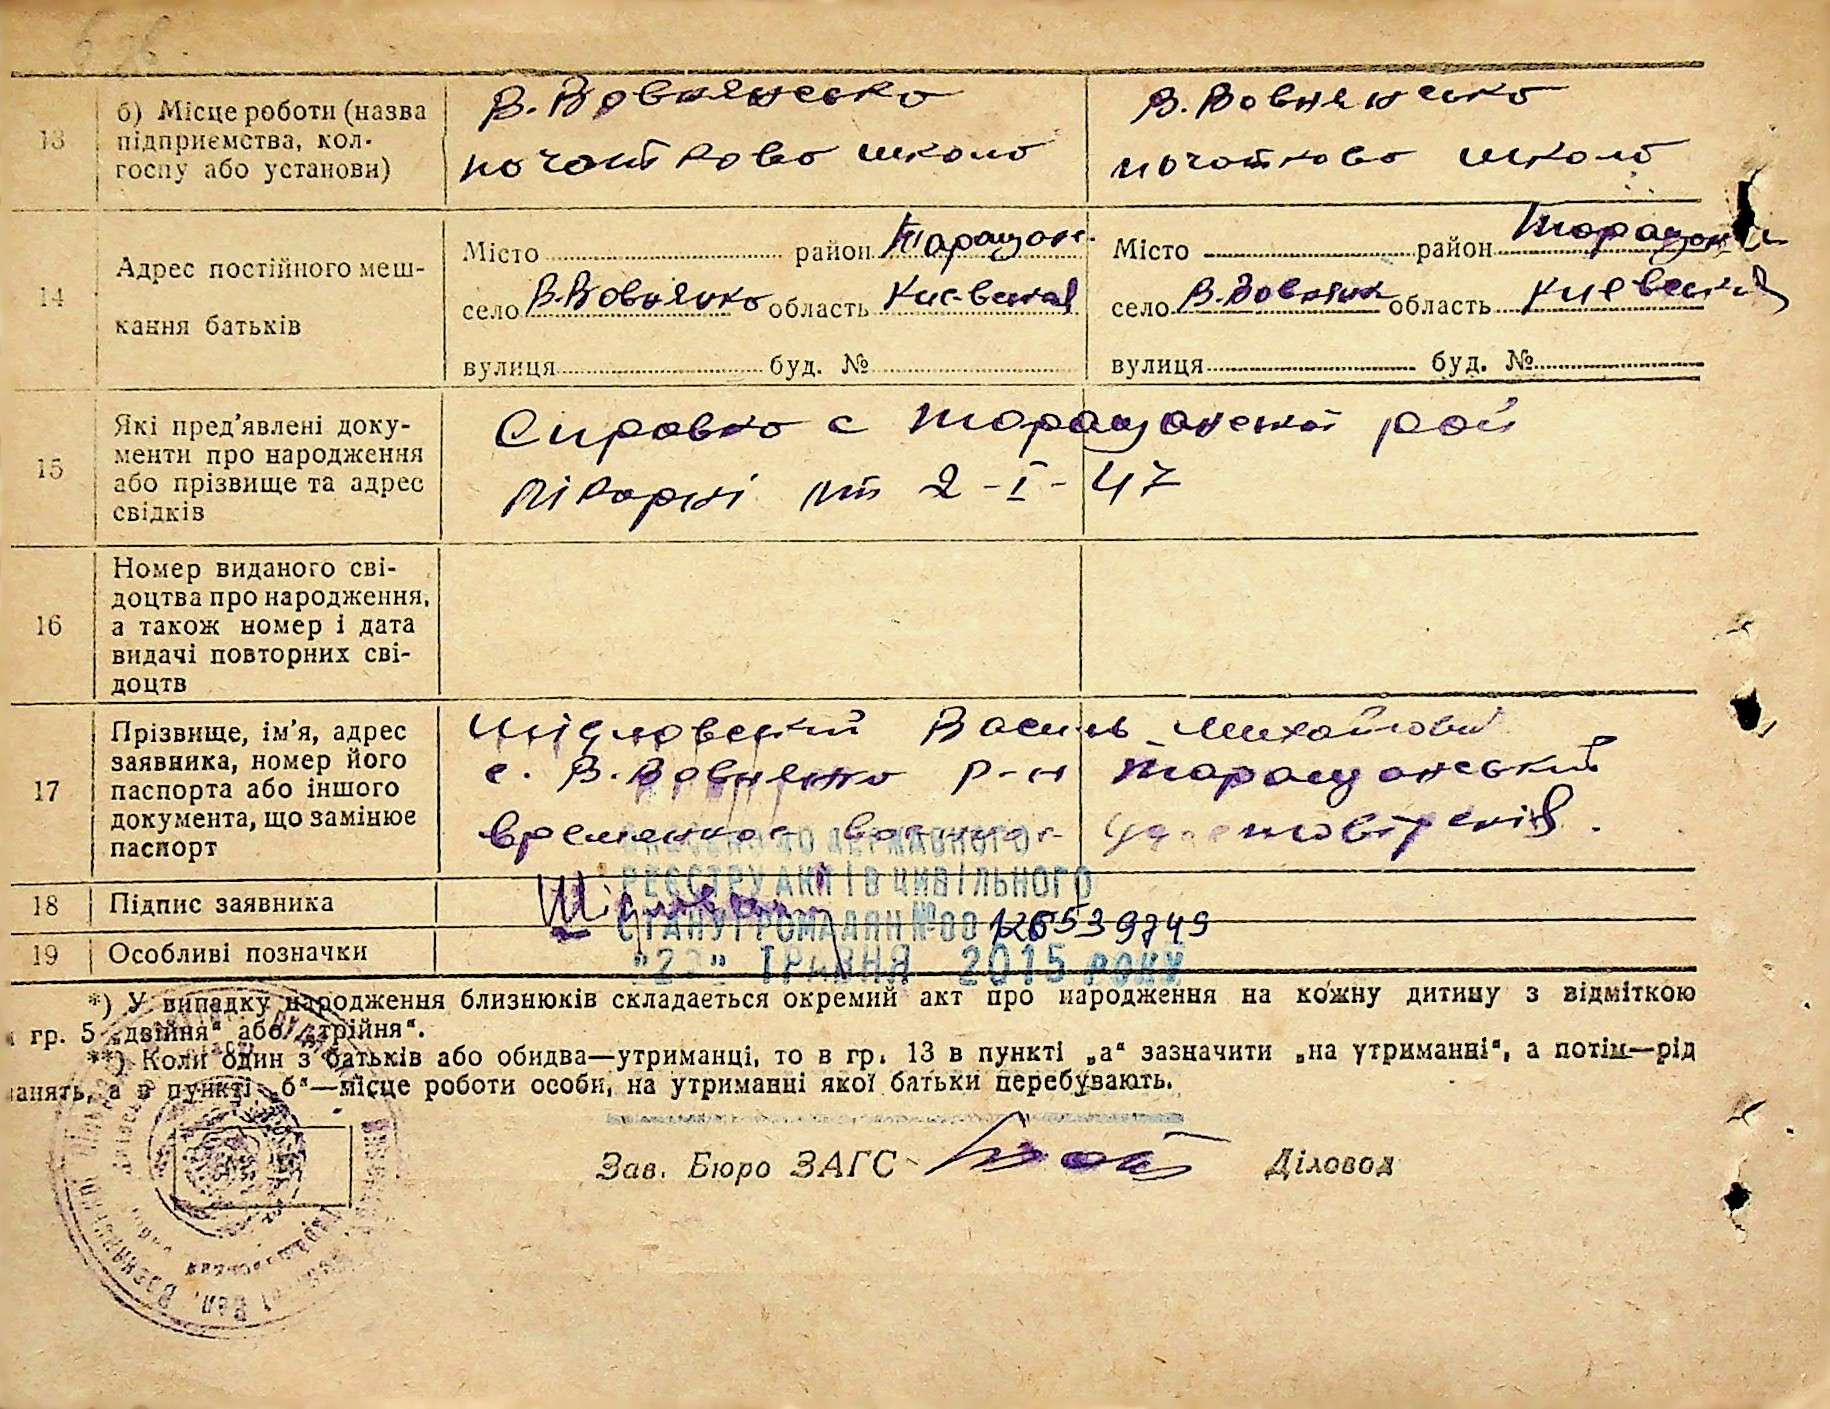 13
б) Місце роботи (назва
підприємства, кол-
госпу або установи)
В. Вовнянсько
початкова школа
В. Вовнянсько
початкова школа
14
Адрес постійного меш-
кання батьків
Місто район Таращан.
село В. Вовнянко область Киевская
вулиця буд. №
Місто район
село В. Вовнянк область Киевская
вулиця буд. №
15
Які пред'явлені доку-
менти про народження
або прізвище та адрес
свідків
Справка с Таращанської рай
лікарні від 2-I-47
16
Номер виданого сві-
доцтва про народження,
а також номер і дата
видачі повторних сві-
доцтв
17
Прізвище, ім'я, адрес
заявника, номер його
паспорта або іншого
документа, що замінює
паспорт
Шідловский Василь Михайлович
с. В. Вовнянко р-н Таращанський
временное
18
Підпис заявника
19
Особливі позначки
ВНЕСЕНО ДО ДЕРЖАВНОГО
РЕЄСТРУ АКТІВ ЦИВІЛЬНОГО
СТАНУ ГРОМАДЯН №00126539749
ТРАВНЯ 2015 РОКУ
*) У випадку народження близнюків складається окремий акт про народження на кожну дитину з відміткою
гр. 5 „двійня“ або „трійня“.
**) Коли один з батьків або обидва—утриманці, то в гр. 13 в пункті „а“ зазначити „на утриманні“, а потім—рід
занять, а в пункті „б“—місце роботи особи, на утриманні якої батьки перебувають.
Зав. Бюро ЗАГС Діловод